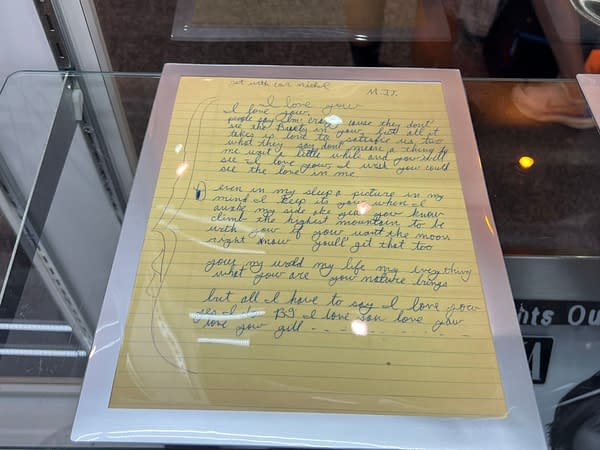 M.J.
I love you
I love you
people say I'm crazy cause they don't
see the Buety in you, but all it
takes is love to satisfie us too
what they say don't mean a thing to
me wait a little while and you will
see I love you, I wish you could
see the love in me
even in my sleep a picture in my
mind I keep its you when I
awake my side oh girl you know
climb the highest mountain to be
with you if you want the moon
right know youll git that too
your my world my life my everything
what you are you nature brings
but all I have to say I love you
yes I B2 I love you love you
love you girl - - - -
hts Ou